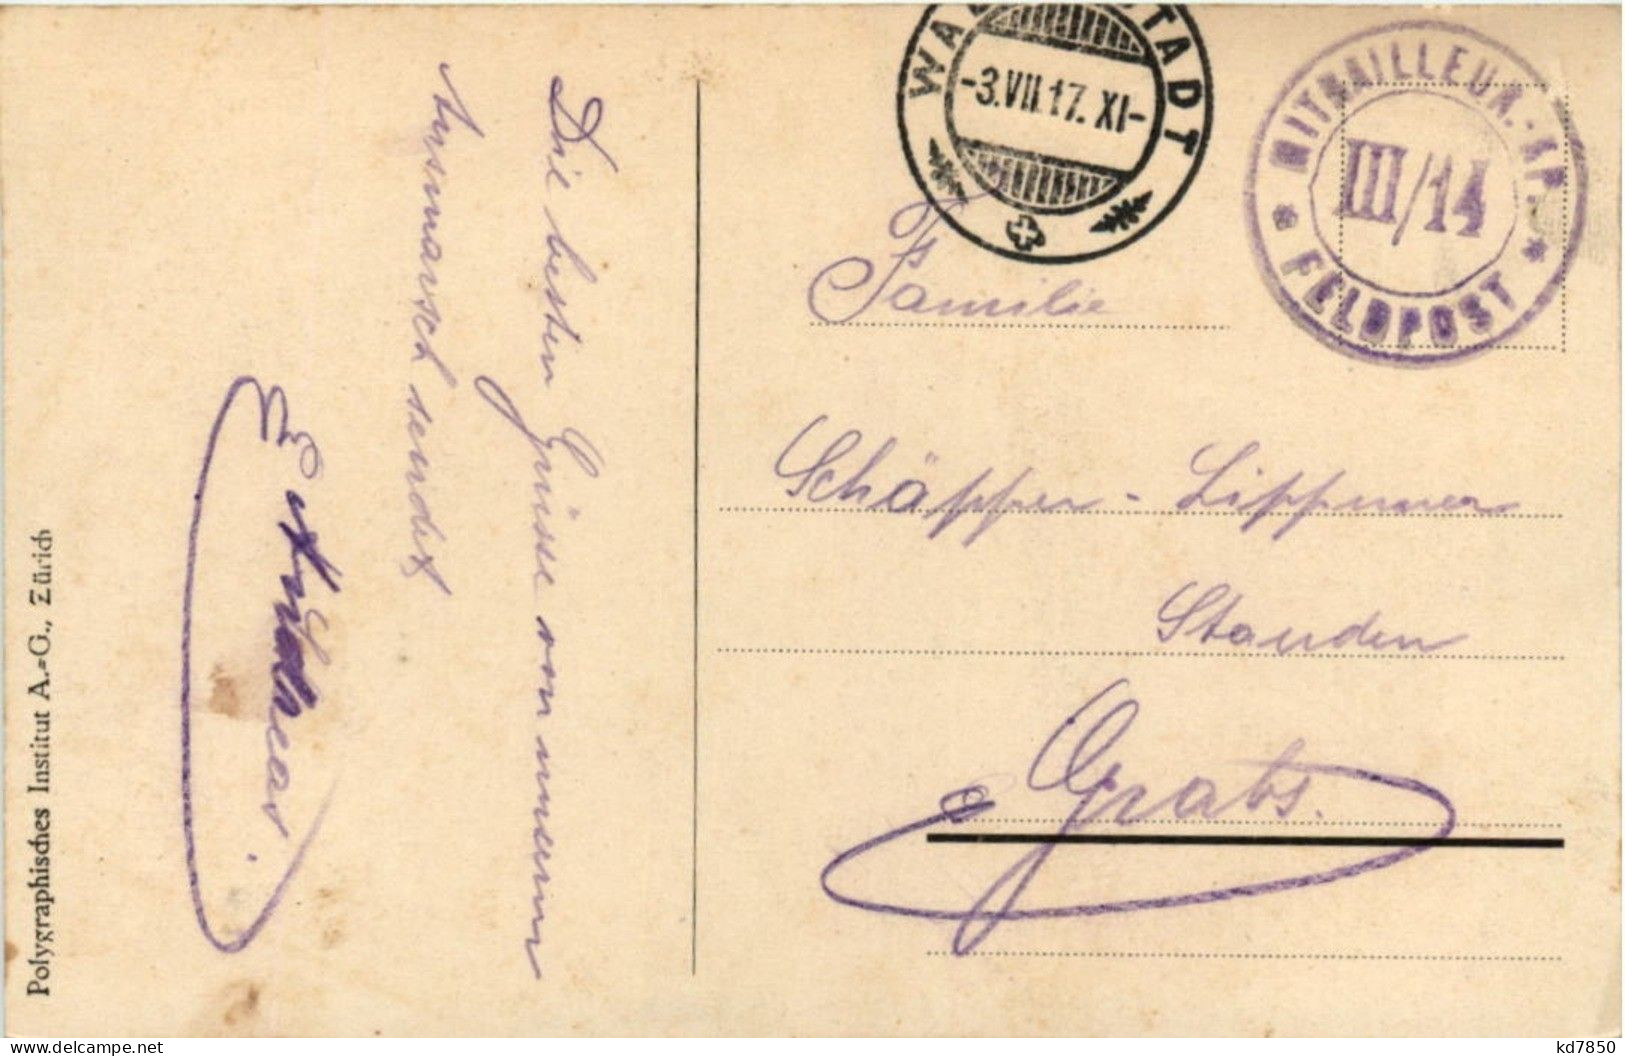 Die besten Grüsse von unserm
Ausmarsch sendet
Polygraphisches Institut A.-G., Zürich
-3.VII.17. XI-
MITRAILLEUR.-KP.
III/14
FELDPOST
Familie
Schäpper - Lippuner
Stauden
Grabs.
kd7850